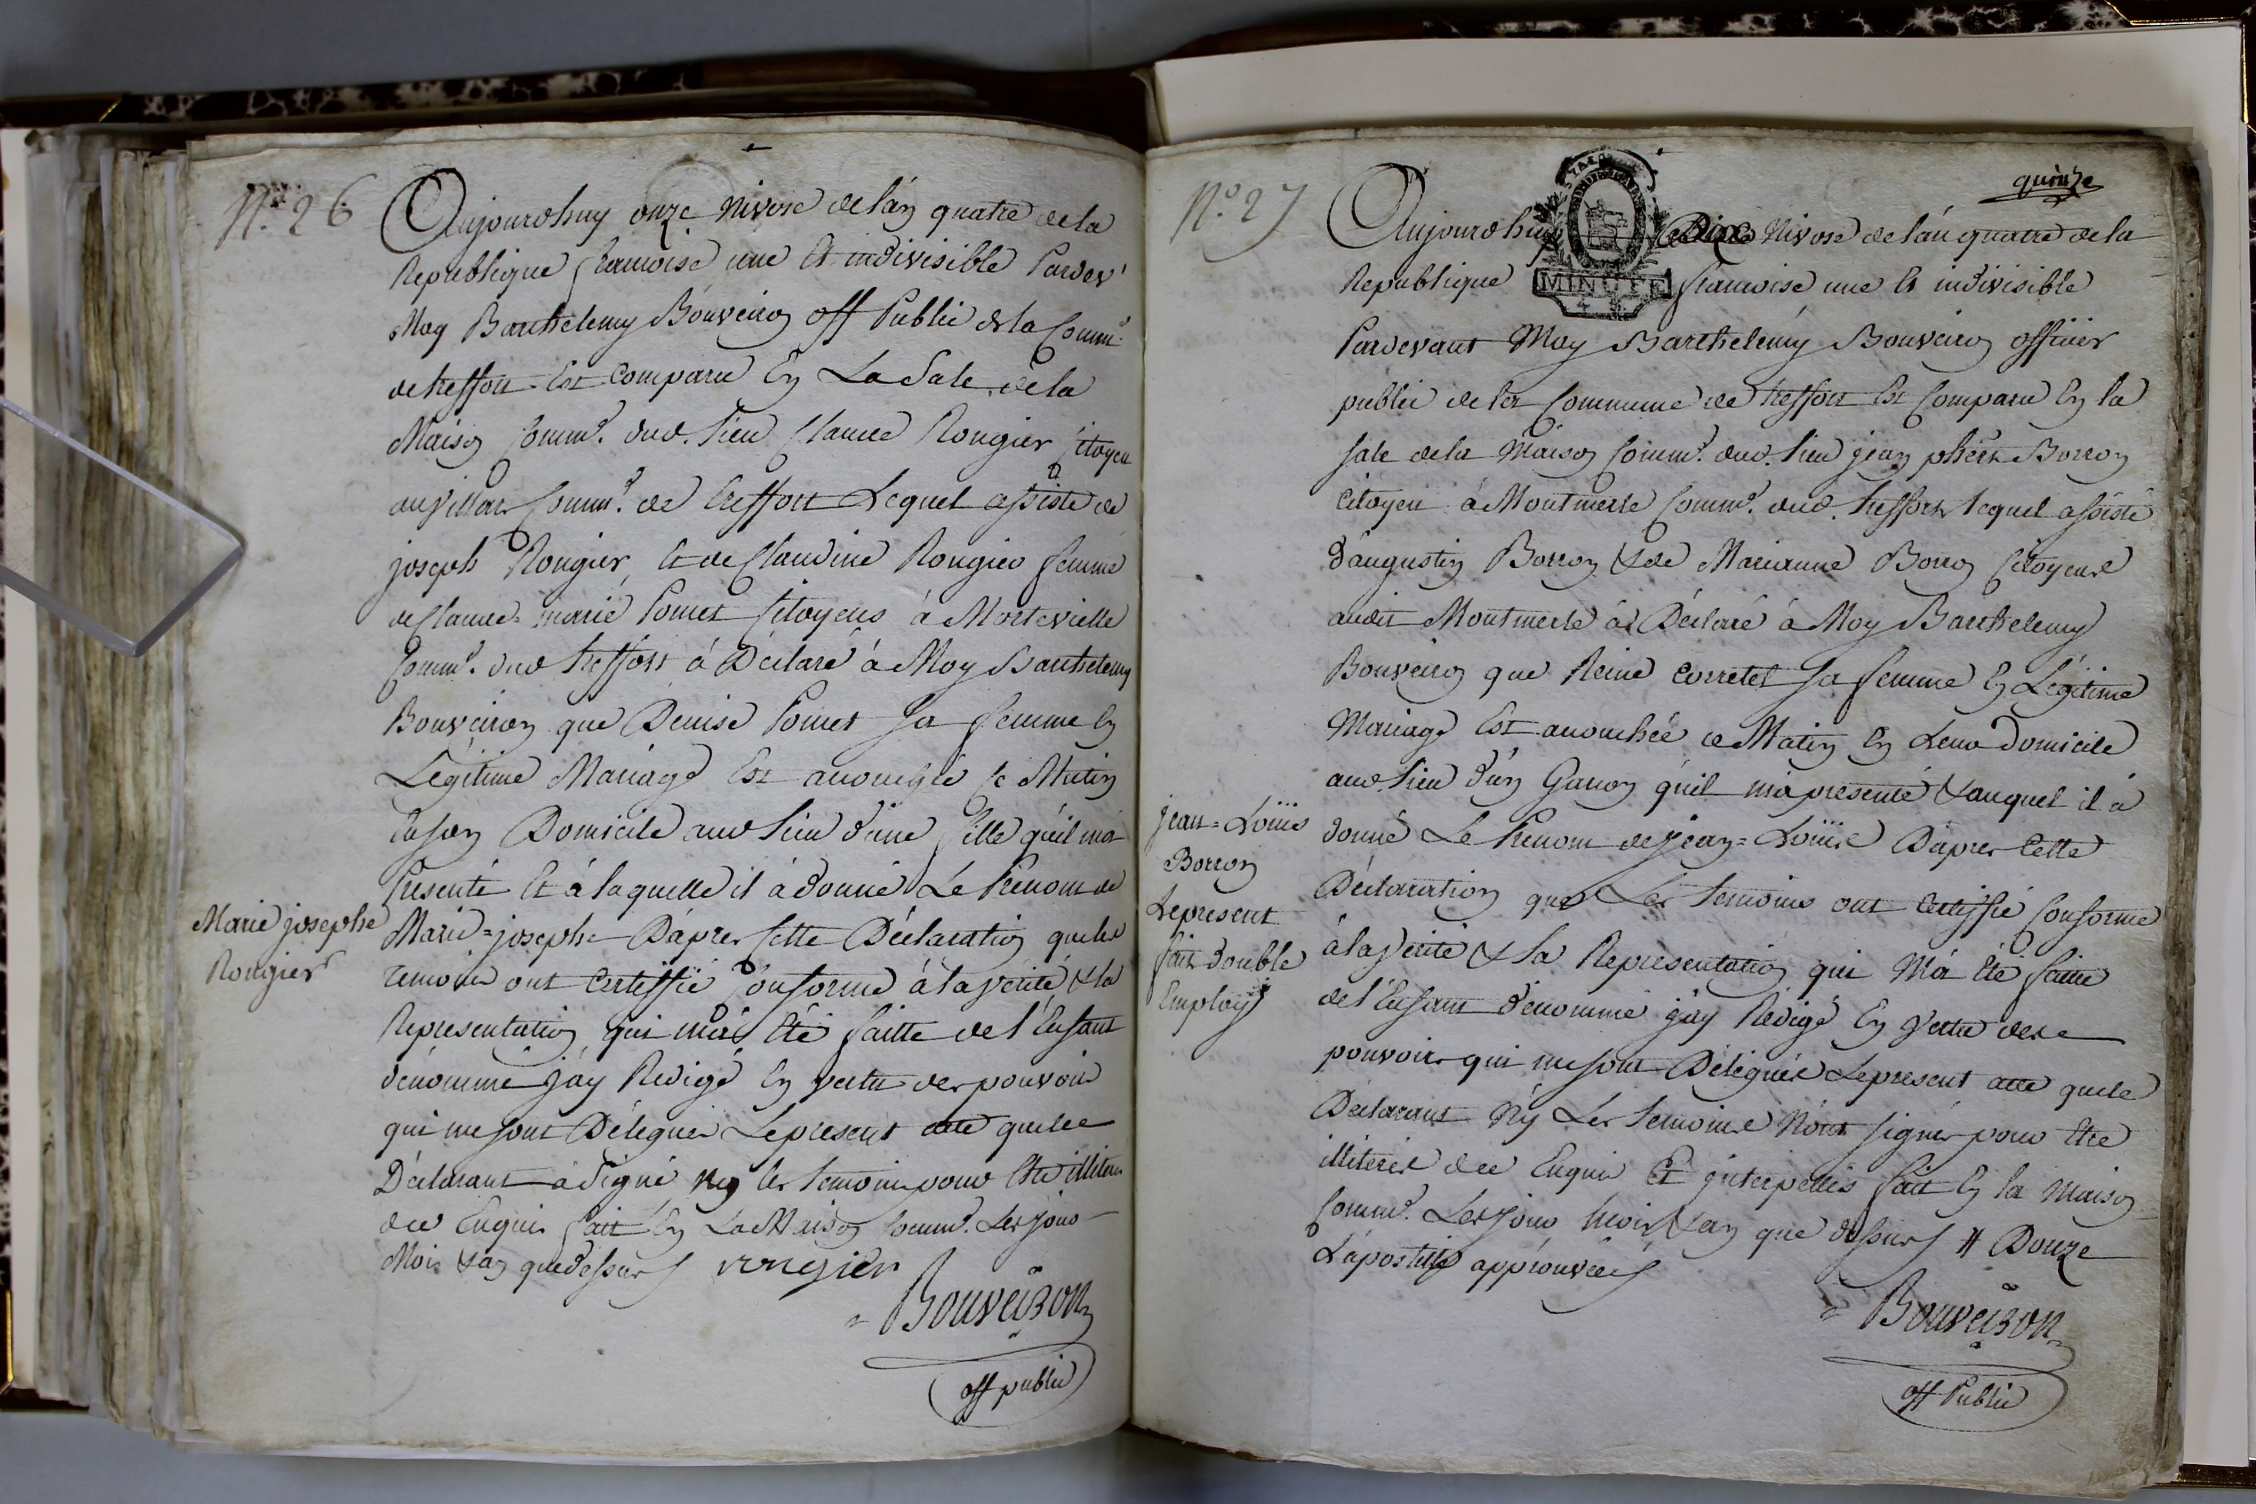 N.º 26
Aujourdhuy onze Nivose de lán quatre de la
Republique francoise une et indivisible Pardev.t
Moy Barthelemy Bouveiron off Public de la Comm.e
de treffort Est comparu En La Sale de la
Maison Comm.e dud. Lieu Claude Rougier Citoyen
au villar Comm.e de treffort Lequel assisté de
joseph Rougier, et de Claudine Rougier femme
de Claude marie Pomet Citoyens à Montevielle
Comm.e dud treffort á Déclaré à Moy Barthelemy
Bouveiron que Denise Pomet sa femme En
Légitime Mariage Est accouchée Ce Matin
En son Domicile aud Lieu d'une fille quil má
Presenté Et á laquelle il á donné Le Prénom de
Marie=josephe D'áprès Cette Déclaration que les
temoins ont certiffié Conforme á la verité & la
Représentation qui má Eté faitte de l'Enfant
dénommé j'áy Redigé En vertu des pouvoirs
qui me sont Délégués Le present acte que le
Déclarant á signé Ny les temoins pour Etre illiteres
de ce Enquis fait En La Maison Comm.e Les jour
Mois & an que dessus rougier
Bouveiron
off public
Marie josephe
Rougier
quinze
N.º 27
Aujourd'huy Dixe Nivose de lán quatre de la
Republique francoise une et indivisible
MINUTE
Pardevant Moy Barthelemy Bouveiron officier
public de la Commune de treffort Est Comparu En la
sale de la Maison Comm.e dud. Lieu jean Borron
Citoyen á Montmerle Comm.e dud. treffort lequel assisté
d'augustin Borron & de Marianne Borron Citoyens
audit Montmerle á Déclaré à Moy Barthelemy
Bouveiron que Reine Corretel sa femme En Légitime
Mariage Est accouchée ce Matin En Leur Domicile
aud. Lieu d'ún Garcon qúil má présenté & auquel il á
donné Le Prenom de jean=Loüis D'áprès Cette
Déclaration que Les temoins ont Certiffié Conforme
á la verité & la Représentation qui Má Eté faitte
de l'Enfant dénommé j'áy Redigé En vertu des
pouvoirs qui me sont Délégués Le present acte que le
Déclarant Ny Les temoins Nónt signés pour Etre
illiteres de ce Enquis Et jnterpellés fait En la Maison
Comm.e Les jour Mois & an que dessus # Douze
L'apostille approuvée
Bouveiron
off Public
jean=Loüis
Borron
Le present
fait double
Employ